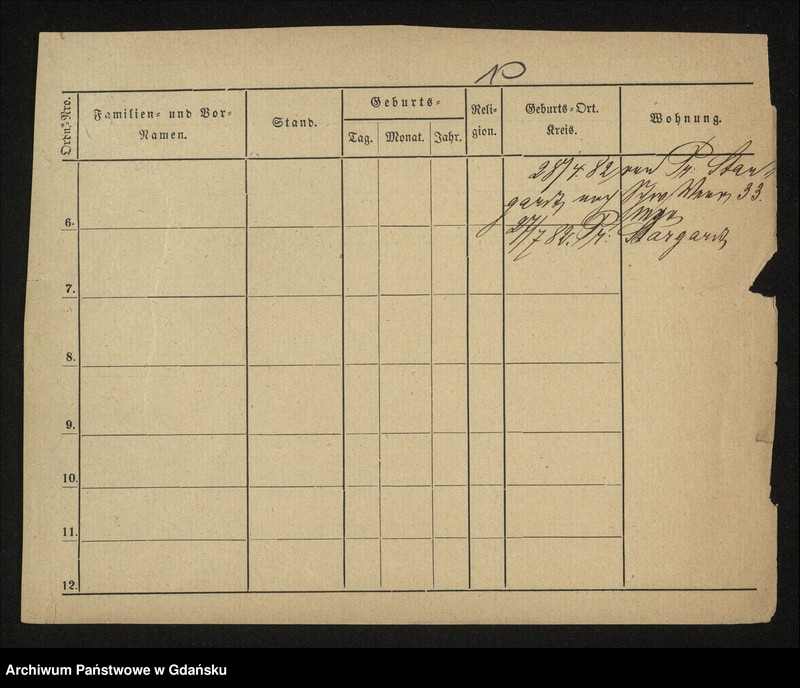 Ordn.-Nro.
Familien- und Vor-
Namen.
Stand.
Geburts-
Tag.
Monat.
Jahr.
Reli-
gion.
Geburts-Ort.
Kreis.
Wohnung.
28/4. 82 von Pr. Star-
gardt nach 33.
6.
27/7 82. Pr: Stargardt
7.
8.
9.
10.
11.
12.
Archiwum Państwowe w Gdańsku